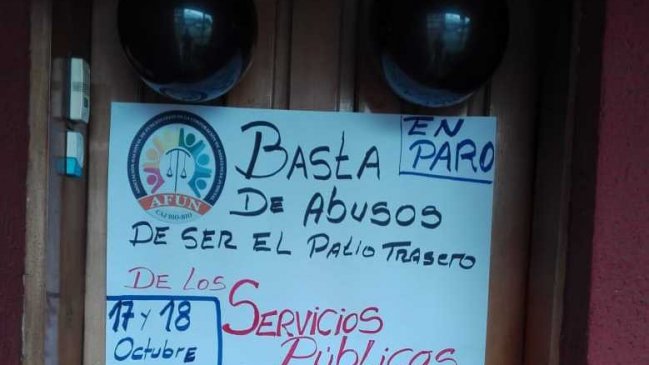 EN
PARO
BASTA
DE ABUSOS
DE SER EL PATIO TRASERO
DE LOS
SERVICIOS
PÚBLICOS
17 Y 18
Octubre
AFUN
CAJ BIO-BIO